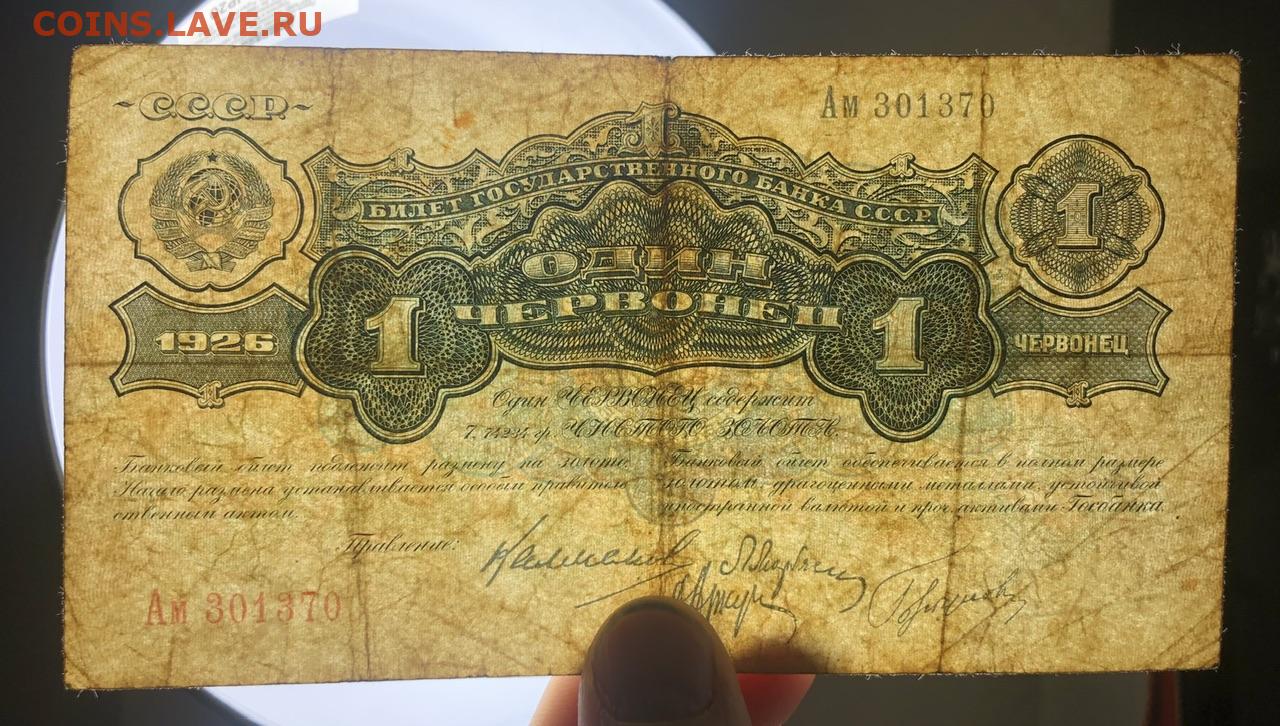 COINS.LAVE.RU
С.С.С.Р.
Ам 301370
1
БИЛЕТ ГОСУДАРСТВЕННОГО БАНКА С.С.С.Р.
1
ОДИН
ЧЕРВОНЕЦ
1926
1
1
ЧЕРВОНЕЦ
Один ЧЕРВОНЕЦ содержит
7,74234 гр. ЧИСТОГО ЗОЛОТА.
Банковый билет подлежит размену на золото.
Начало размена устанавливается особым правитель-
ственным актом.
Банковый билет обеспечивается в полном размере
золотом, драгоценными металлами, устойчивой
иностранной валютой и проч. активами Госбанка.
Правление:
Ам 301370